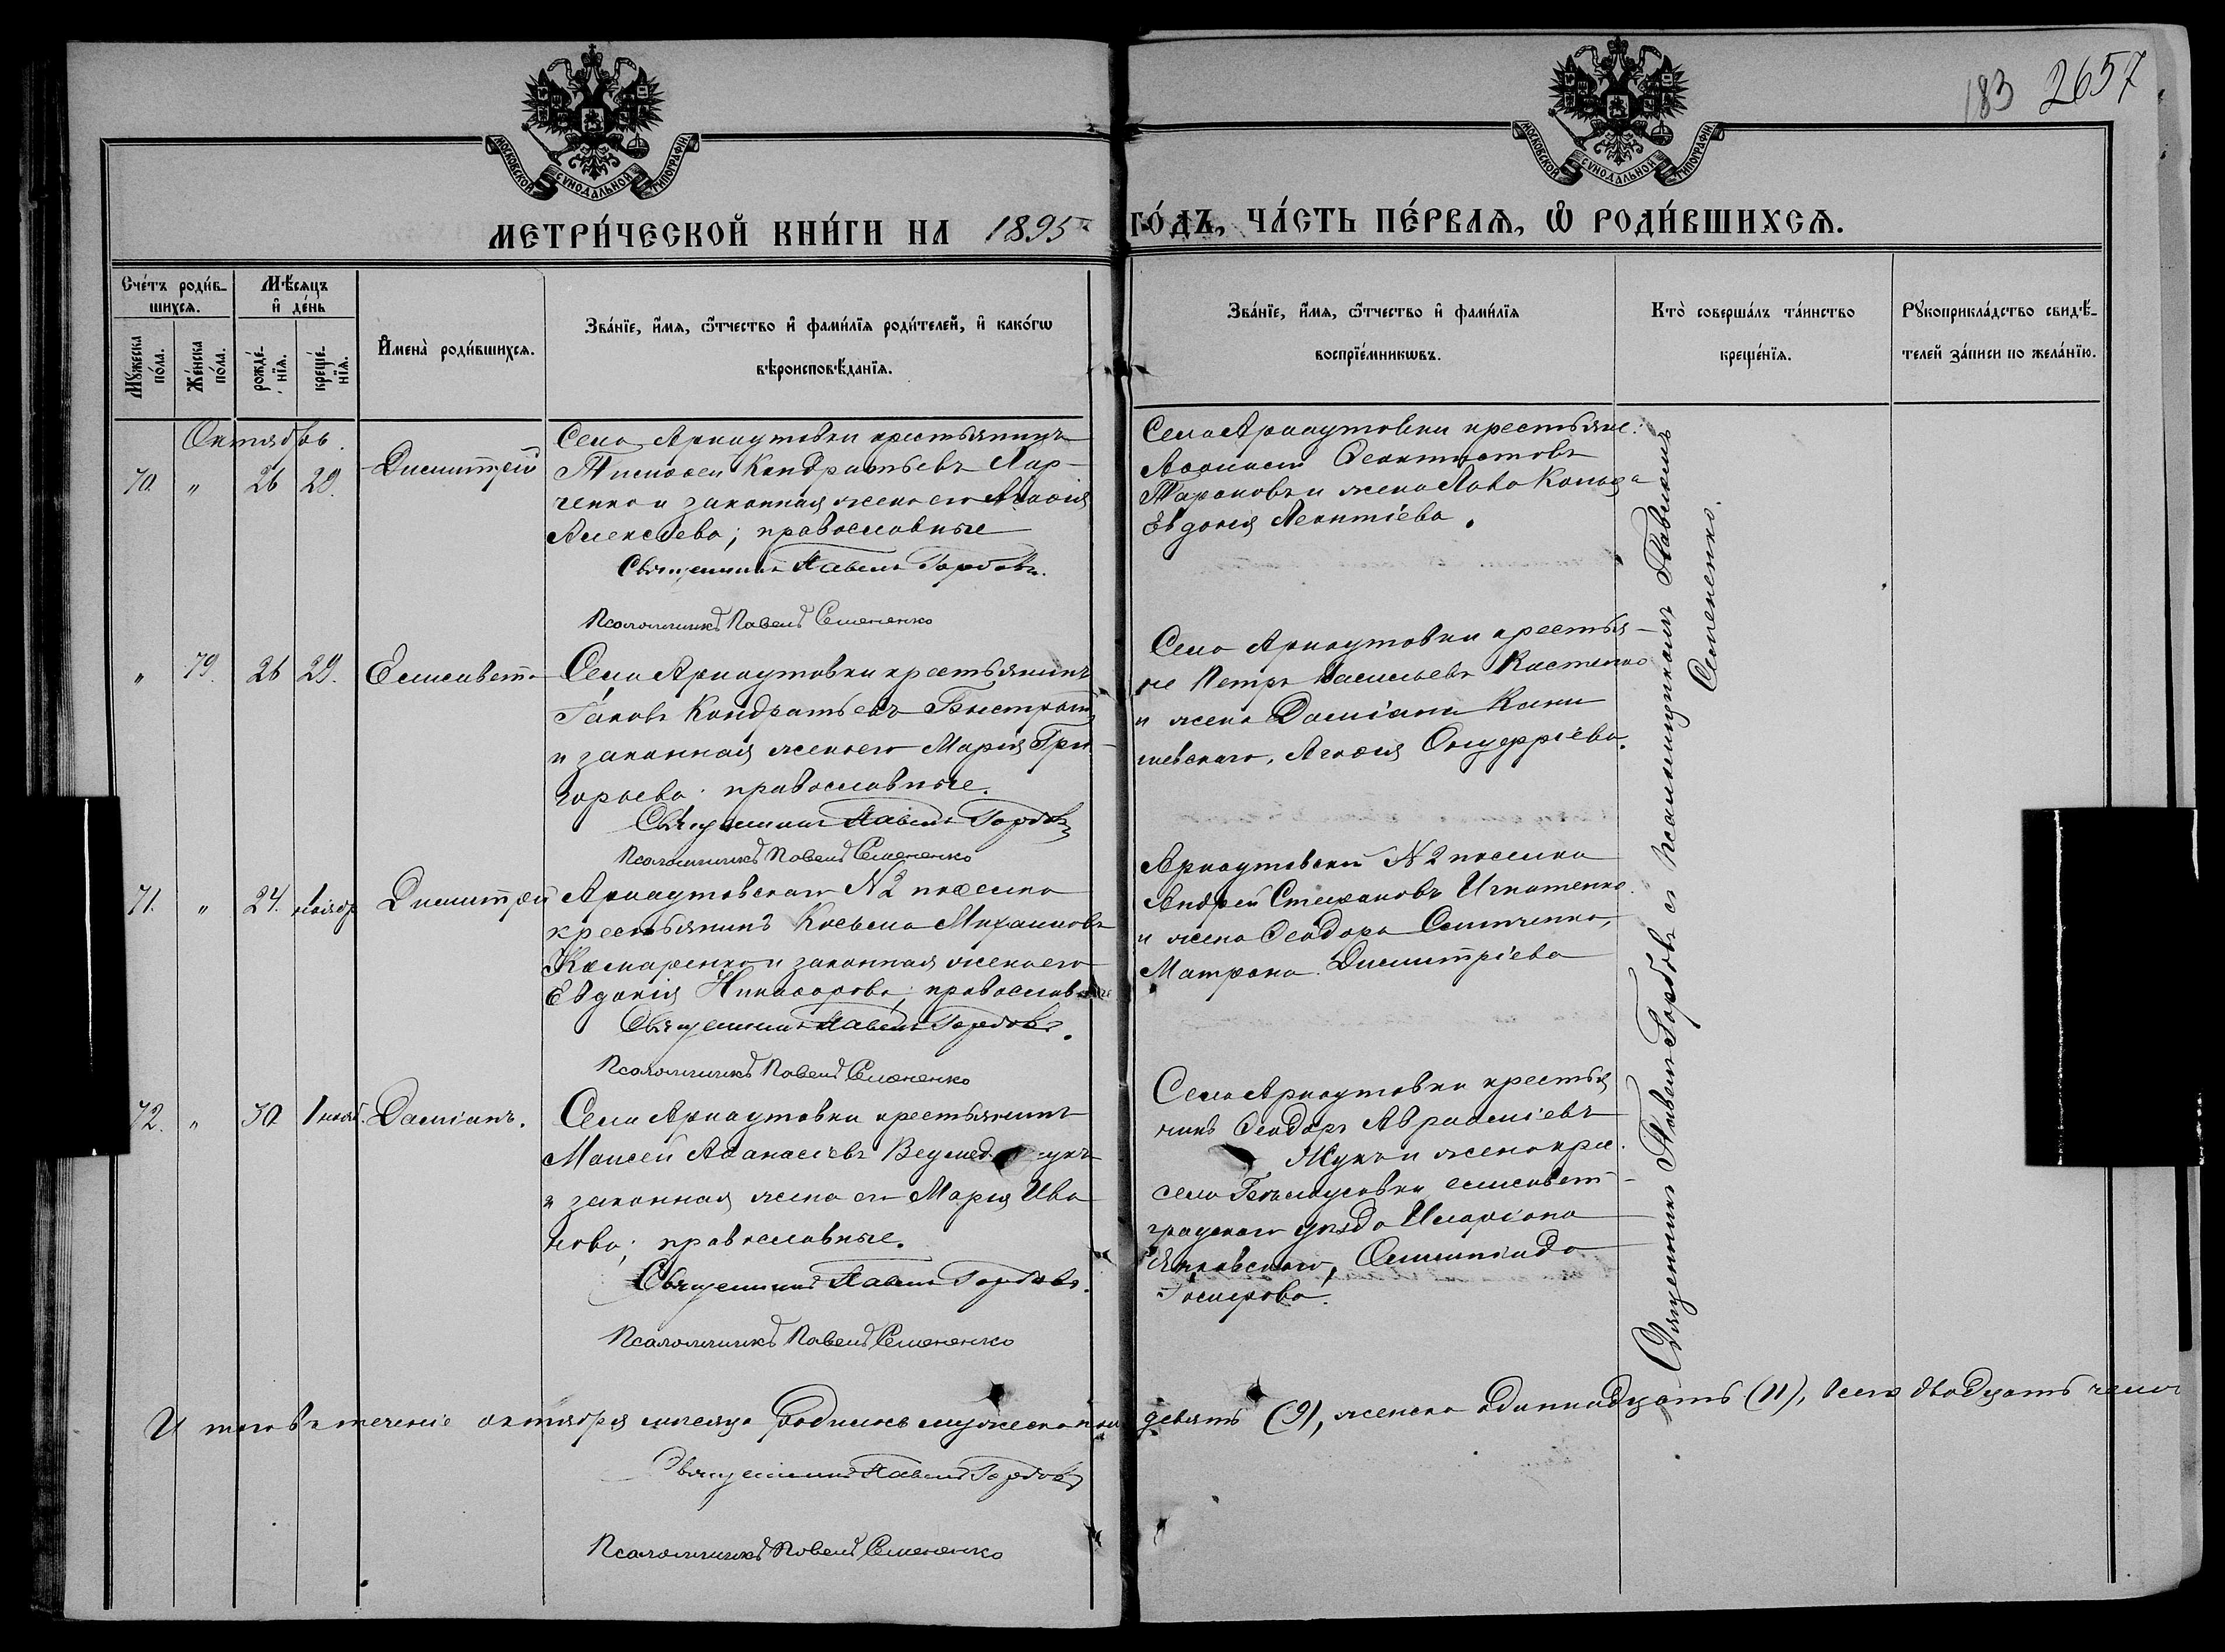 183 2657
МОСКОВСКОЙ СУНОДАЛЬНОЙ ТИПОГРАФІИ.
МОСКОВСКОЙ СУНОДАЛЬНОЙ ТИПОГРАФІИ.
МЕТРИ́ЧЕСКОЙ КНИ́ГИ НА 1895 ГО́ДЪ, ЧА́СТЬ ПЕ́РВАѦ, Ѡ РОДИ́ВШИХСѦ.
Счéтъ роди́в-
шихсѧ.
Мꙋ́жеска по́ла.
Же́нска по́ла.
Мѣ́сѧцъ
и҆ де́нь
рожде́-
нїѧ.
креще́-
нїѧ.
И҆мена̀ роди́вшихсѧ.
Зва́нїе, и҆́мѧ, ѻ҆́тчество и҆ фами́лїѧ роди́телей, и҆ како́гѡ
вѣроисповѣ́данїѧ.
Зва́нїе, и҆́мѧ, ѻ҆́тчество и҆ фами́лїѧ
воспрїе́мникѡвъ.
Кто̀ соверша́лъ та́инство
креще́нїѧ.
Рꙋкоприкла́дство свидѣ́-
телей за́писи по жела́нїю.
Октябрь.
70. " 26 29. Димитрій
Села Арнаутовки крестьянинъ
Тимофей Кондратьевъ
ченко и законная жена его
Алексѣева; православные
Священникъ Павелъ Горбовъ.
Псаломщикъ Павелъ Семененко
Села Арнаутовки крестьяне:
Тарановъ и жена
Евдокія Леонтіева.
" 79. 26 29. Елисавета
Села Арнаутовки крестьянинъ
Іаковъ Кондратьевъ
и законная жена его Марія Гри-
горьева; православные.
Священникъ Павелъ Горбовъ
Псаломщикъ Павелъ Семененко
Села Арнаутовки крестья-
не Петръ Васильевъ Костенко
и жена Даміана
Онуфріева.
71. " 24. 1 ноябр Димитрій
Арнаутовскаго №2 поселка
крестьянинъ Косьма Михаиловъ
и законная жена его
Евдокія Никифорова; православные
Священникъ Павелъ Горбовъ.
Псаломщикъ Павелъ Семененко
Арнаутовскаго №2 поселка
Андрей Стефановъ Игнатенко
и жена Ѳеодора
Матрона Димитріева
72. " 30 1 нояб. Даміанъ.
Села Арнаутовки крестьянинъ
Моисей Аѳанасіевъ
и законная жена его Марія Ива
нова; православные.
Священникъ Павелъ Горбовъ.
Псаломщикъ Павелъ Семененко
Села Арнаутовки крестья
нинъ Ѳеодоръ
Жукъ и жена кре.
села елисавет-
градскаго уѣзда Иларіона
Священникъ Павелъ Горбовъ съ псаломщикомъ Павломъ
Семененко.
Итого въ теченіе октября мѣсяца родилось мужеска пола девять (9), женска одиннадцать (11), всего двадцать челов
Священникъ Павелъ Горбовъ
Псаломщикъ Павелъ Семененко